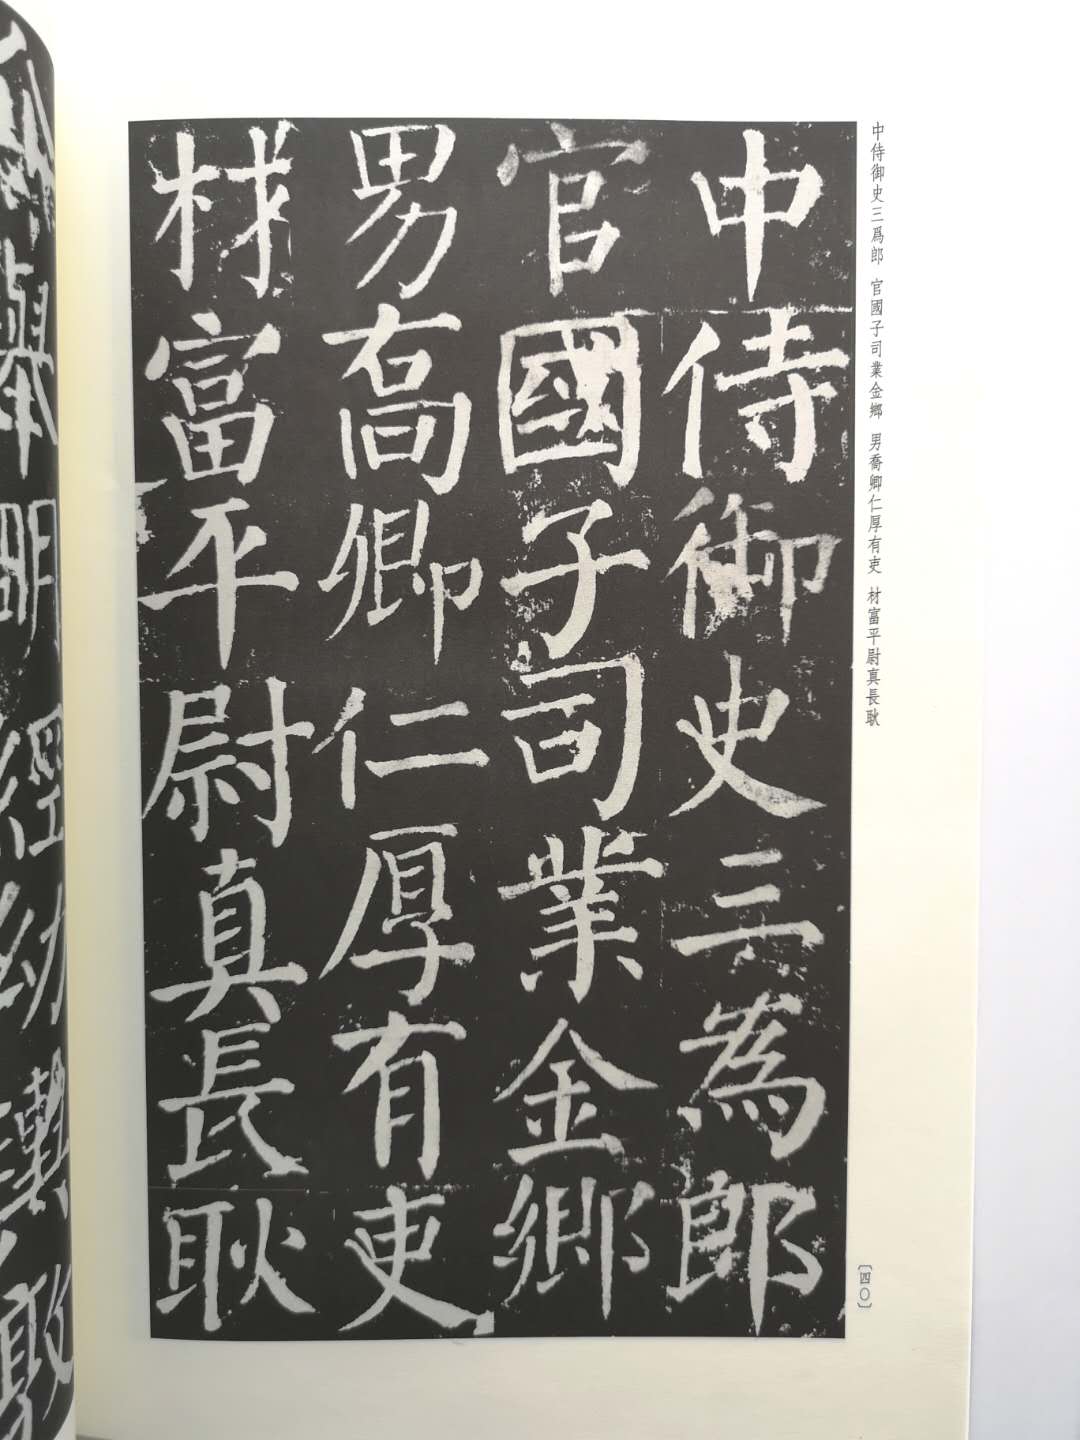 中侍御史三爲郎 官國子司業金鄉 男喬卿仁厚有吏 材富平尉真長耿
中侍御史三為郎
官國子司業金鄉
男喬卿仁厚有吏
材富平尉真長耿
〔四〇〕
舉明經幼輿敦